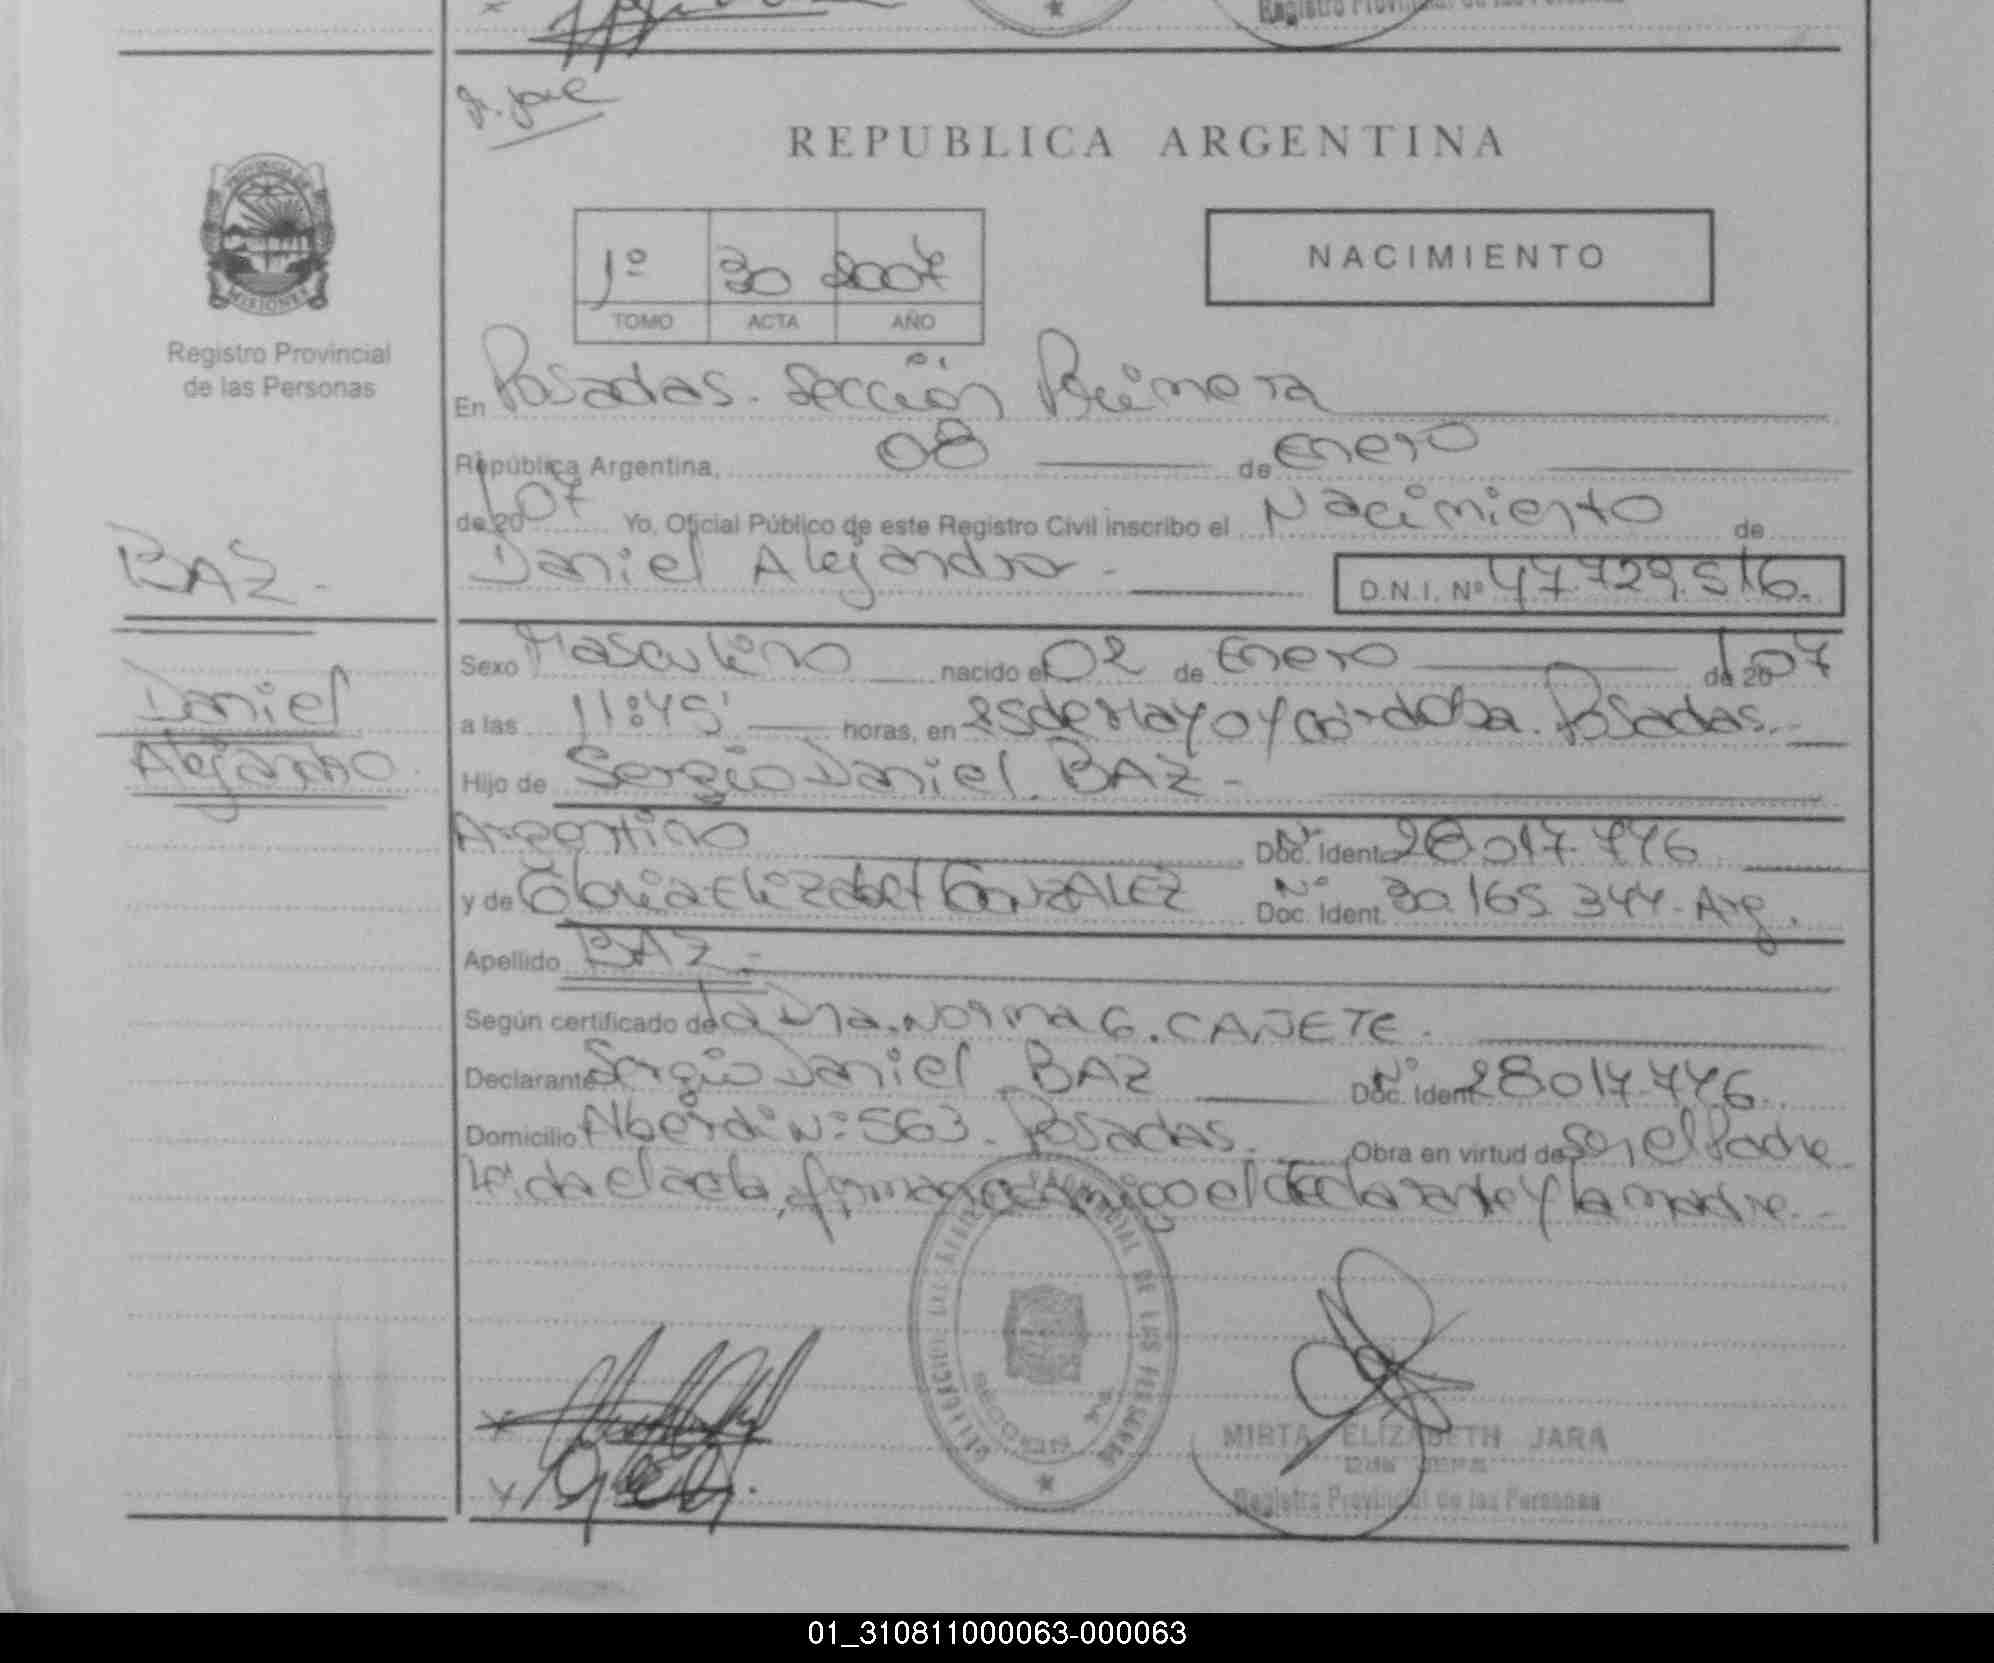 Registro Provincial de las Personas
Jr. José
REPUBLICA ARGENTINA
1º 30 2007
TOMO ACTA AÑO
NACIMIENTO
PROVINCIA DE
MISIONES
Registro Provincial
de las Personas
En Posadas. Sección Primera
República Argentina, 08 de Enero
de 2007 Yo, Oficial Público de este Registro Civil inscribo el Nacimiento de
Daniel Alejandro - D.N.I. Nº 47.729.516.
BAZ -
Daniel
Alejandro.
Sexo Masculino nacido el 02 de Enero de 2007
a las 11:45' horas, en 25 de Mayo y Córdoba. Posadas.-
Hijo de Sergio Daniel BAZ -
Argentino Doc. Ident. Nº 28.017.776
y de Gloria Elizabet GONZALEZ Doc. Ident. Nº 30.165.344- Arg.
Apellido BAZ -
Según certificado de la Dra. Norma G. CAJETE.
Declarante Sergio Daniel BAZ Doc. Ident. Nº 28.017.776.
Domicilio Alberdi Nº 563. Posadas. Obra en virtud de Ser el Padre.
Leída el acta, firman conmigo el declarante y la madre.-
MIRTA ELIZABETH JARA
Registro Provincial de las Personas
01_310811000063-000063